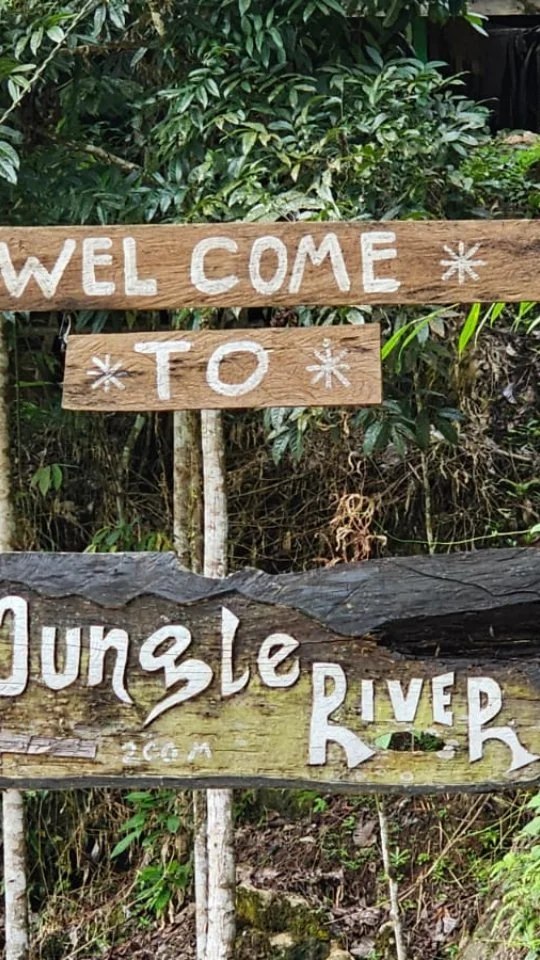 WEL COME
TO
Jungle RIVER
200 M